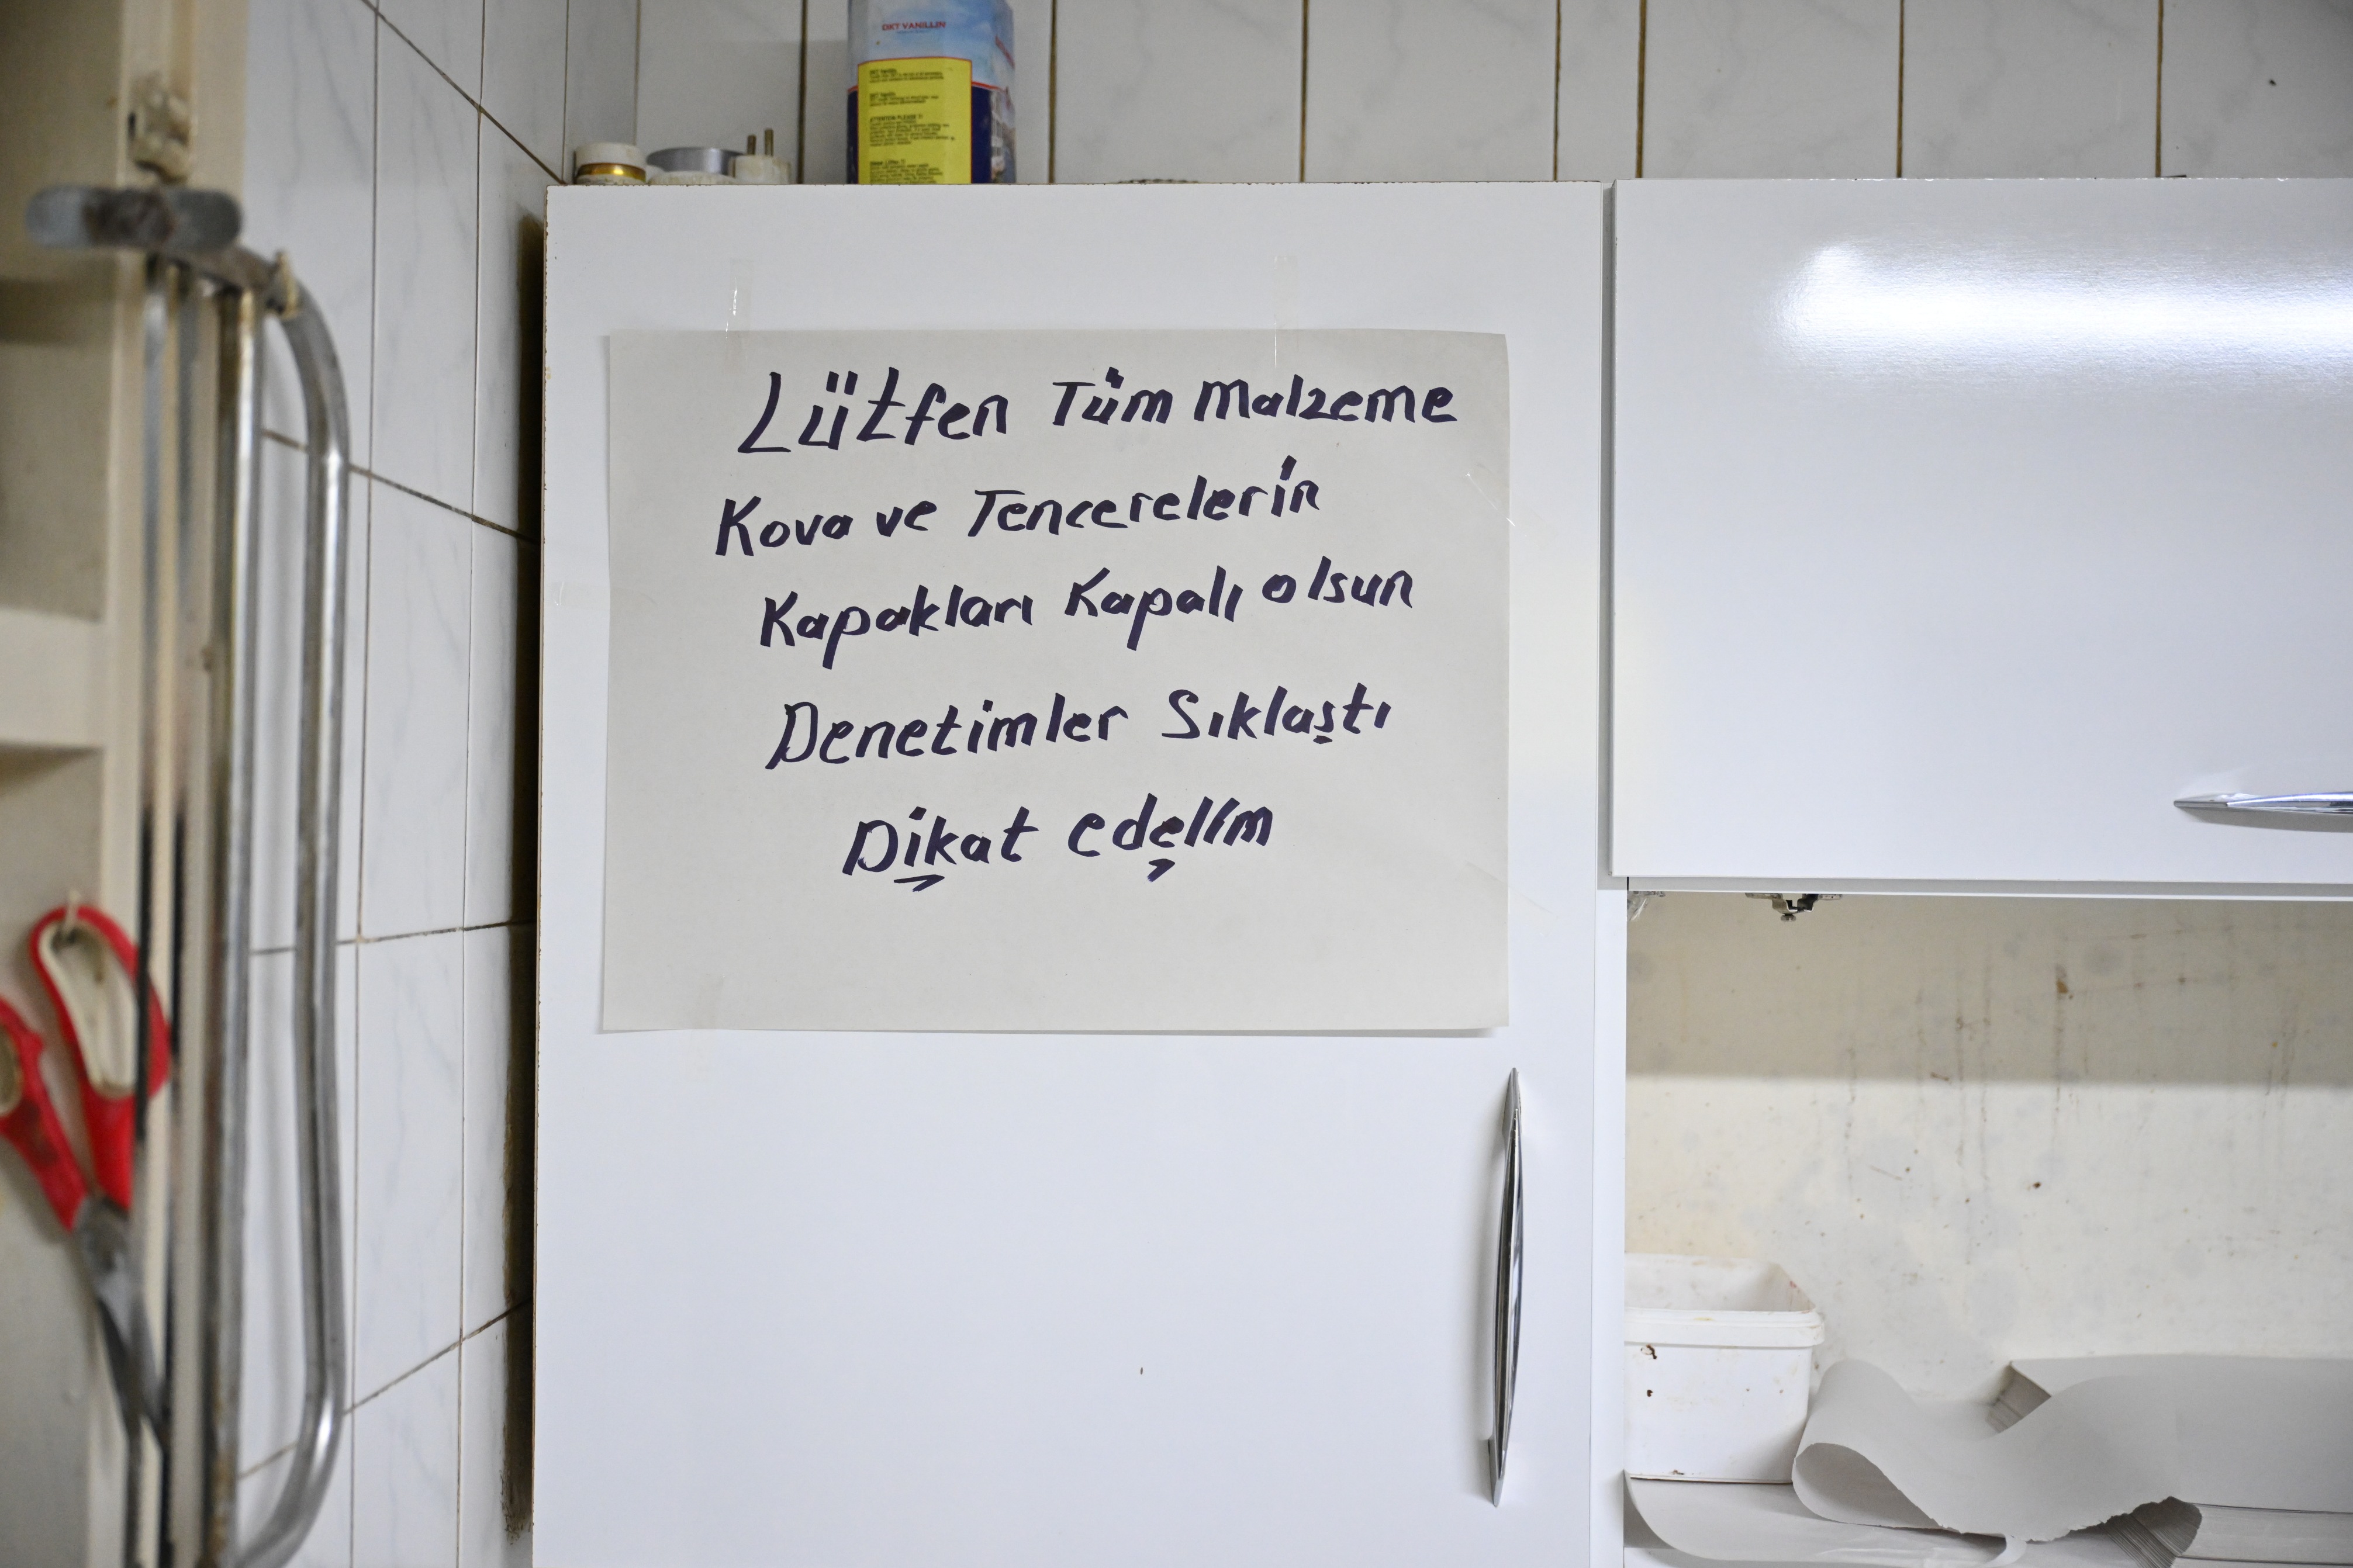 OKT VANILLIN
ATTENTION PLEASE !!
Lütfen Tüm Malzeme
Kova ve Tencerelerin
Kapakları Kapalı olsun
Denetimler Sıklaştı
Dikat edelim